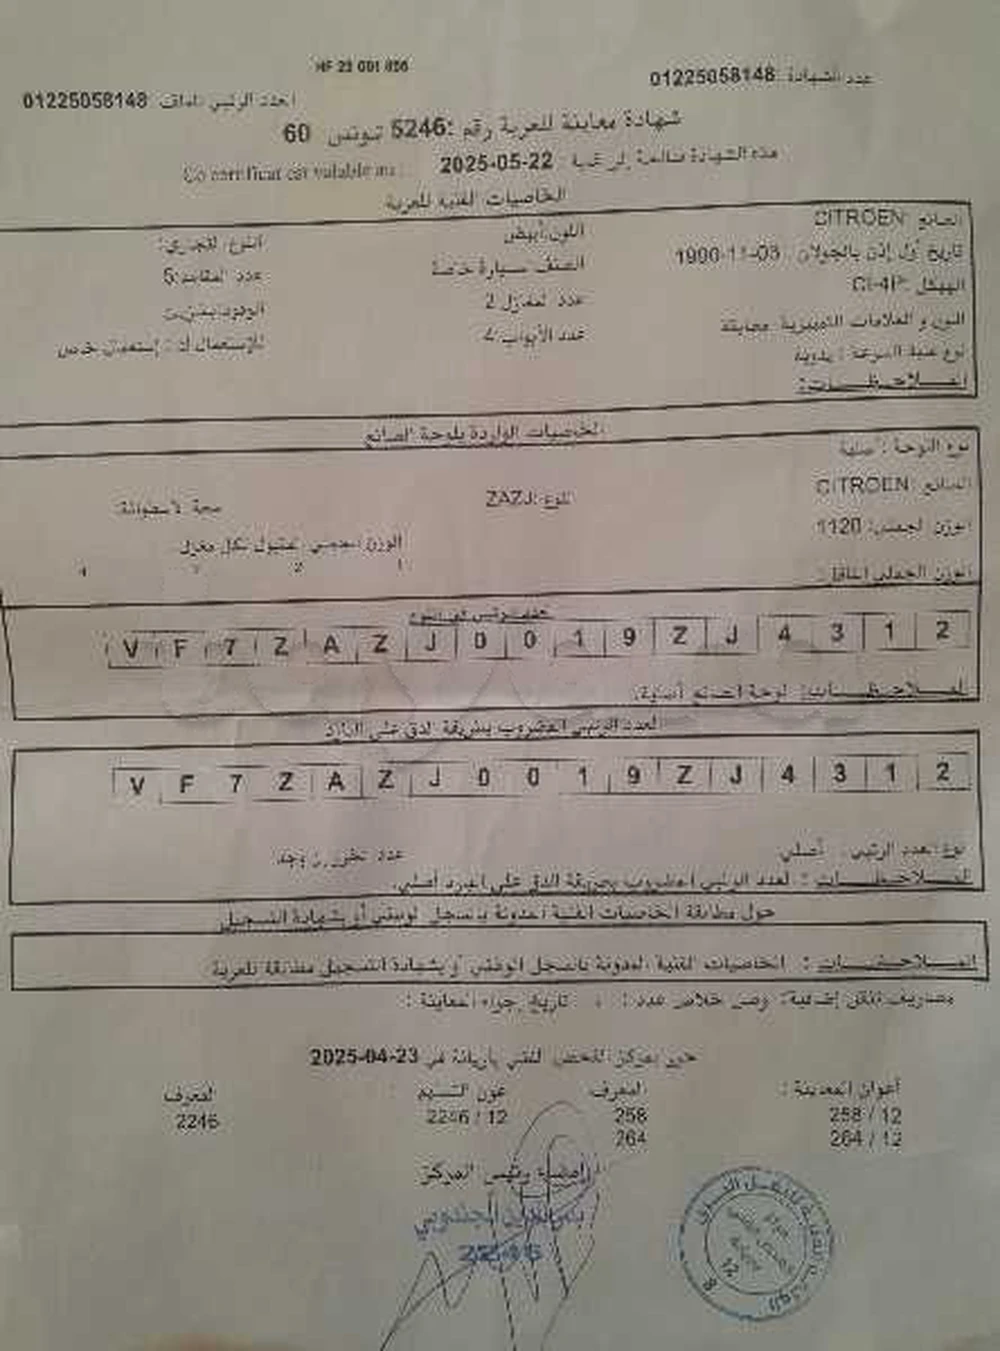 HF 22 001 056
عدد الشهادة: 01225058148
العدد الرئيسي للملف: 01225058148
شهادة معاينة للعربة رقم: 5246 تونس 60
هذه الشهادة صالحة إلى غاية: 2025-05-22 Ce certificat est valable au :
الخاصيات الفنية للعربة
الصانع: CITROEN اللون: أبيض النوع التجاري:
تاريخ أول إذن بالجولان: 1990-11-03 الصنف: سيارة خاصة عدد المقاعد: 5
الهيكل: CI-4P عدد المغازل: 2 الوقود: بنزين
اللون و العلامات التمييزية: مطابقة عدد الأبواب: 4 الإستعمال: إستعمال خاص
نوع علبة السرعة: يدوية
الملاحظات:
الخاصيات الواردة بلوحة الصانع
نوع اللوحة: أصلية
الصانع: CITROEN النوع: ZAZJ سعة الأسطوانة:
الوزن الجملي: 1120 الوزن الجملي المقبول لكل مغزل:
الوزن الجملي الفاقل: 1 2 3 4
العدد الرئيسي في النوع
V F 7 Z A Z J 0 0 1 9 Z J 4 3 1 2
الملاحظات: لوحة الصانع أصلية.
العدد الرئيسي المضروب بطريقة الدق على البارد
V F 7 Z A Z J 0 0 1 9 Z J 4 3 1 2
نوع العدد الرئيسي: أصلي
الملاحظات: العدد الرئيسي المضروب بطريقة الدق على البارد أصلي.
حول مطابقة الخاصيات الفنية المدونة بالسجل الوطني أو بشهادة التسجيل
الملاحظات: الخاصيات الفنية المدونة بالسجل الوطني أو بشهادة التسجيل مطابقة للعربة
مصاريف تنقل إضافية: وصل خلاص عدد: تاريخ إجراء المعاينة:
حرر بمركز الفحص الفني بأريانة في 2025-04-23
أعوان المعاينة: المعرف عون التسليم: المعرف
258 / 12 258 2246 / 12 2246
264 / 12 264
إمضاء رئيس المركز
الجندوبي
2246